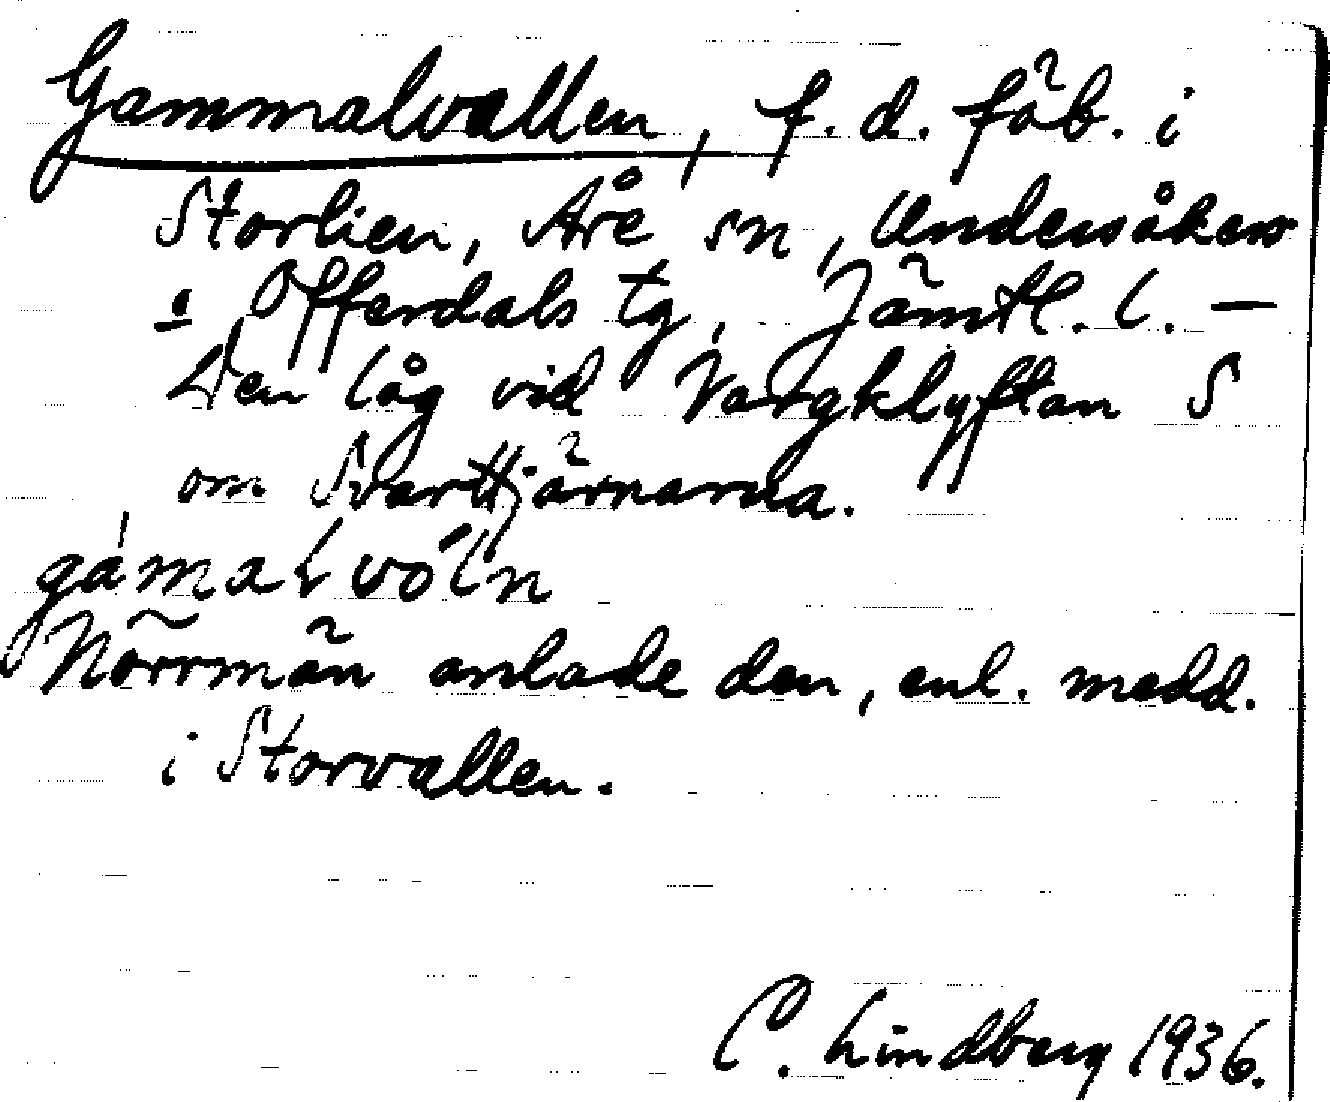 Gammalvallen, f. d. fäb. i
Storlien, Åre sn, Undersåkers
o. Offerdals tg, Jämtl. l. —
Den låg vid Vargklyftan S
om Svarttjärnarna.
Norrmän anlade den, enl. medd.
i Storvallen.
C. Lindberg 1936.